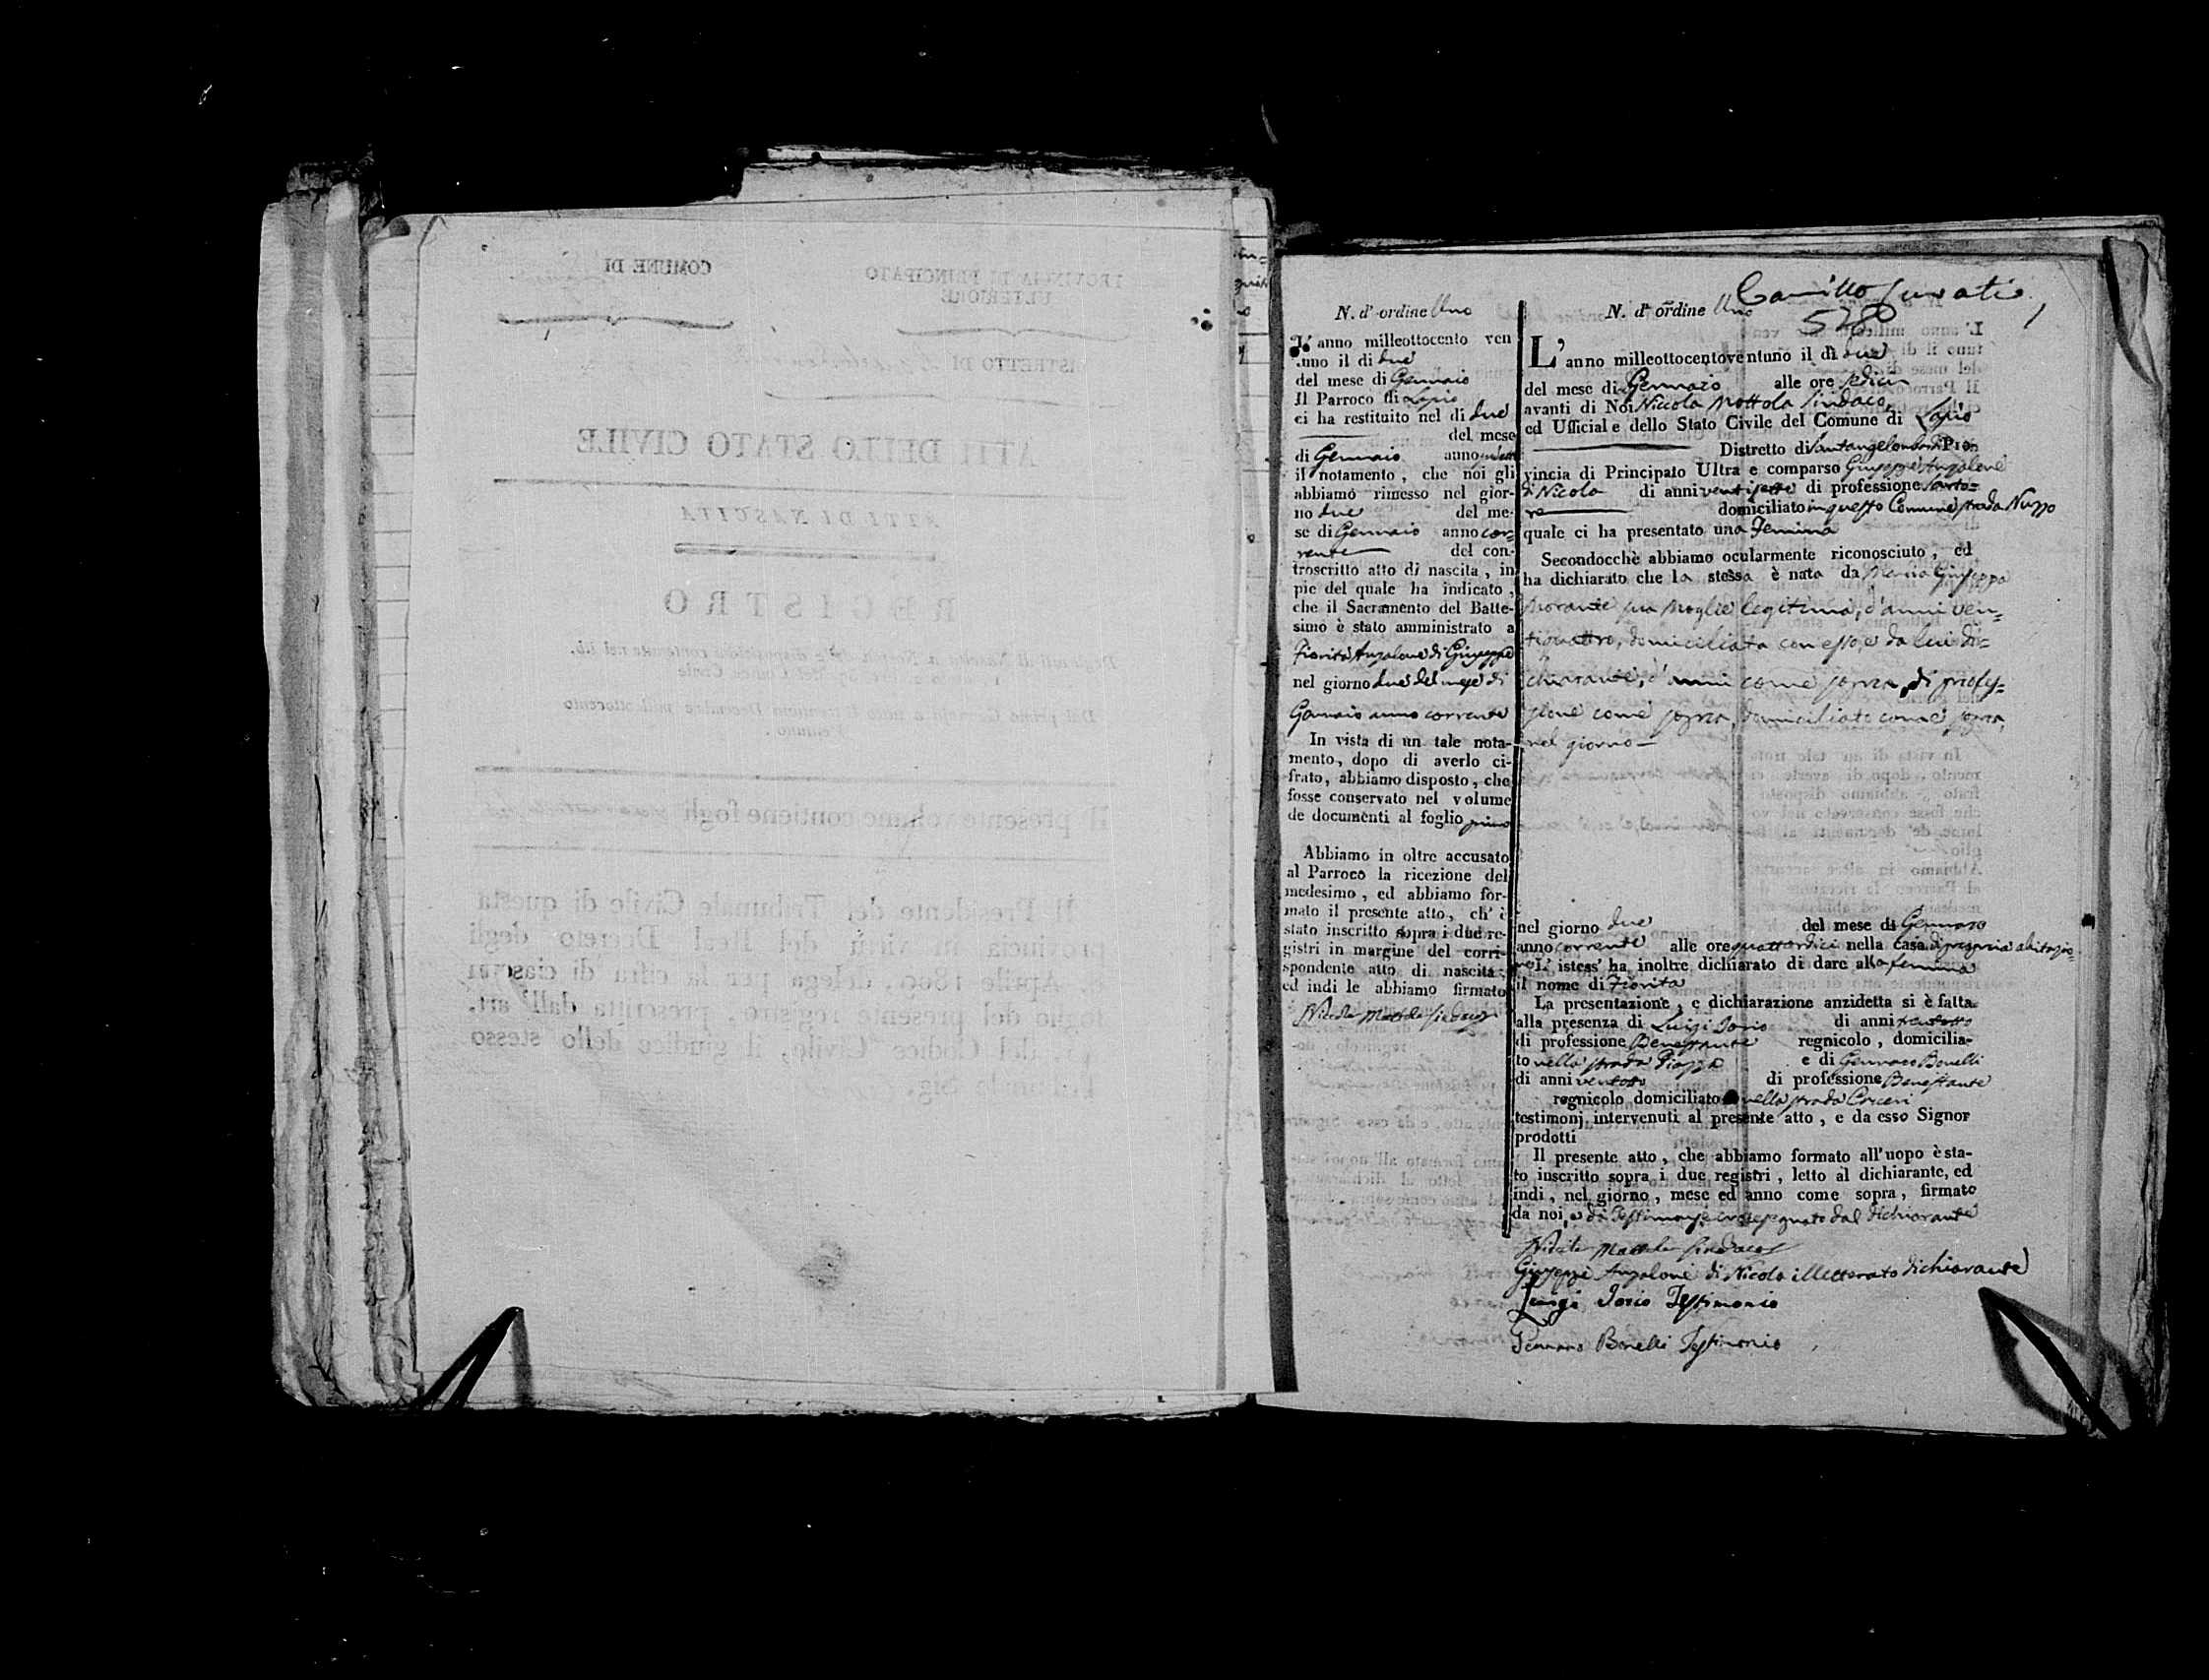 N. d'ordine Uno
L'anno milleottocento ven
tuno il di due
del mese di Gennaio
Il Parroco di Lapio
ci ha restituito nel di due
del mese
di Gennaio anno
il notamento, che noi gli
abbiamo rimesso nel gior-
no due del me-
se di Gennaio anno cor-
rente del con-
troscritto atto di nascita, in
pie del quale ha indicato,
che il Sacramento del Batte-
simo è stato amministrato a
Fiorita Anzalone di Giuseppe
nel giorno due del mese di
Gennaio anno corrente
In vista di un tale nota-
mento, dopo di averlo ci-
frato, abbiamo disposto, che
fosse conservato nel volume
de documenti al foglio primo
Abbiamo in oltre accusato
al Parroco la ricezione del
medesimo, ed abbiamo for-
mato il presente atto, ch' è
stato inscritto sopra i due re-
gistri in margine del corri-
spondente atto di nascita;
ed indi le abbiamo firmato
Nicola Mottola Sindaco
Camillo
N. d'ordine Uno
L'anno milleottocentoventuno il dì due
del mese di Gennaio alle ore sedici
avanti di Noi Niccola Mottola Sindaco,
ed Ufficiale dello Stato Civile del Comune di Lapio
Distretto di Santangelo Lombardi Pro-
vincia di Principato Ultra e comparso Giuseppe Anzalone
di Nicola di anni ventisette di professione Sarto-
re domiciliato in questo Comune strada Nuzzo
quale ci ha presentato una Femina
Secondocchè abbiamo ocularmente riconosciuto, ed
ha dichiarato che la stessa è nata da Maria Giuseppa
Morante sua Moglie legitima, d'anni ven-
tiquattro, domiciliata con esso, e da lui di-
chiarante, d'anni come sopra, di profes-
sione come sopra, domiciliato come sopra,
nel giorno
nel giorno due del mese di Gennaro
anno corrente alle ore quattordici nella casa di propria abitazio-
ne L' istess' ha inoltre dichiarato di dare alla femina
il nome di Fiorita
La presentazione, e dichiarazione anzidetta si è fatta
alla presenza di Luigi Iorio di anni
di professione Benestante regnicolo, domicilia-
to nella strada Piazza e di Gennaro Bonelli
di anni ventotto di professione Benestante
regnicolo domiciliato nella strada
testimonj intervenuti al presente atto, e da esso Signor
prodotti
Il presente atto, che abbiamo formato all'uopo è sta-
to inscritto sopra i due registri, letto al dichiarante, ed
indi, nel giorno, mese ed anno come sopra, firmato
da noi, e da Testimonj e crocesegnato dal dichiarante
Nicola Mottola Sindaco
Giuseppe Anzalone di Nicola illetterato dichiarante
Luigi Iorio Testimonio
Gennaro Bonelli Testimonio